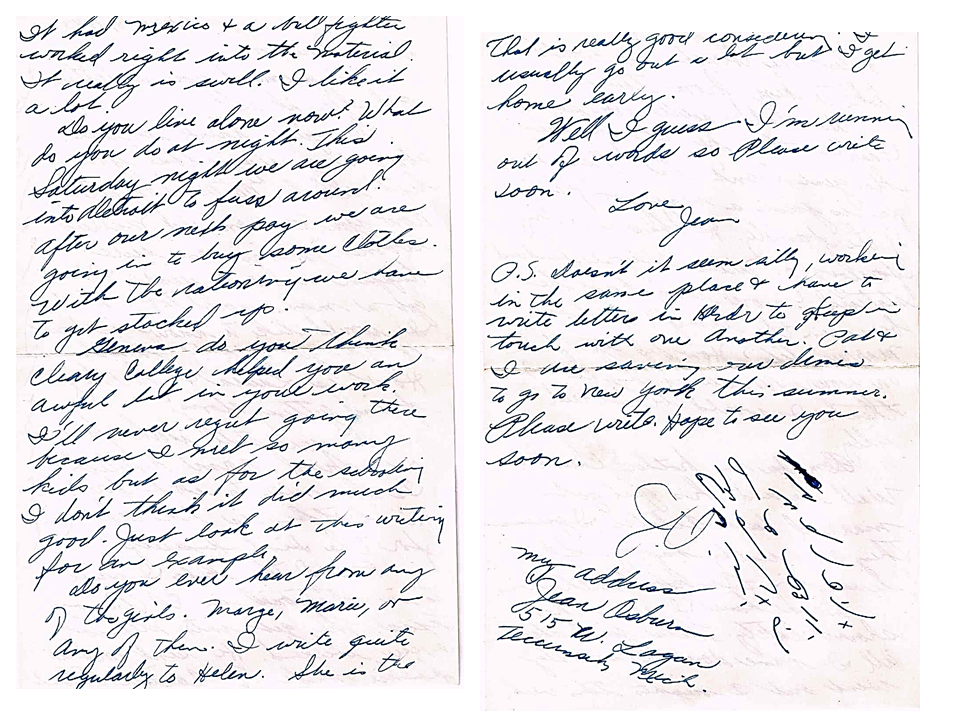 It had Mexico & a bull fighter
worked right into the material.
It really is swell. I like it
a lot.
Do you live alone now? What
do you do at night. This
Saturday night we are going
into Detroit to fuss around.
After our next pay we are
going in to buy some clothes.
With the rationing we have
to get stocked up.
Geneva do you think
Cleary College helped you an
awful lot in your work.
I'll never regret going there
because I met so many
kids but as for the schooling
I don't think it did much
good. Just look at this writing
for an example.
Do you ever hear from any
of the girls. Marge, Marie, or
any of them. I write quite
regularly to Helen. She is the
That is really good considering. I
usually go out a lot but I get
home early.
Well I guess I'm running
out of words so Please write
soon.
Love
Jean
P.S. Doesn't it seem silly, working
in the same place & have to
write letters in order to keep in
touch with one another. Pat &
I are saving our dimes
to go to New York this summer.
Please write. Hope to see you
soon.
My address
Jean Osburn
515 W. Logan
Tecumseh, Mich.